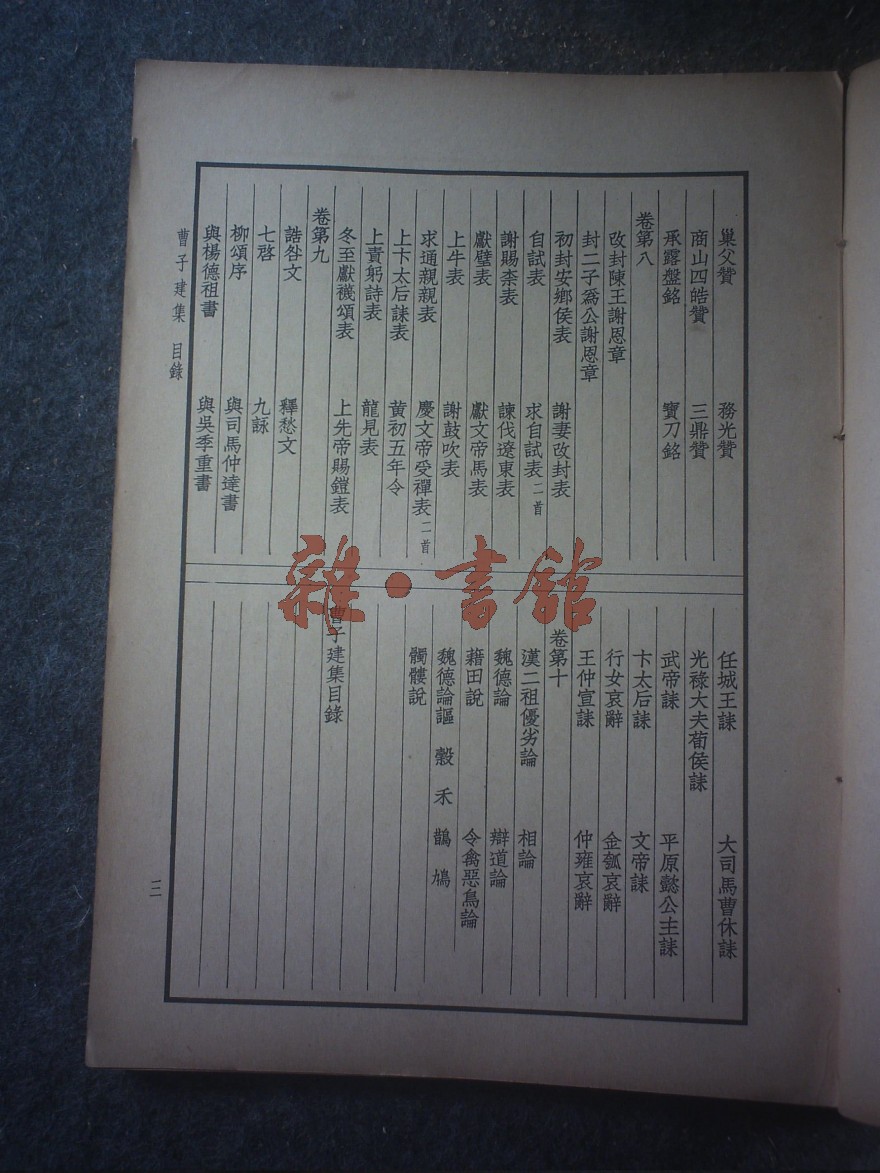 巢父贊　務光贊
商山四皓贊　三鼎贊
承露盤銘　寶刀銘
卷第八
改封陳王謝恩章
封二子爲公謝恩章
初封安鄉侯表　謝妻改封表
自試表　求自試表二首
謝賜柰表　諫伐遼東表
獻璧表　獻文帝馬表
上牛表　謝鼓吹表
求通親親表　慶文帝受禪表二首
上卞太后誄表　黃初五年令
上責躬詩表　龍見表
冬至獻襪頌表　上先帝賜鎧表
卷第九
誥咎文　釋愁文
七啓　九詠
柳頌序　與司馬仲達書
與楊德祖書　與吳季重書
任城王誄　大司馬曹休誄
光祿大夫荀侯誄
武帝誄　平原懿公主誄
卞太后誄　文帝誄
行女哀辭　金瓠哀辭
王仲宣誄　仲雍哀辭
卷第十
漢二祖優劣論　相論
魏德論　辯道論
藉田說　令禽惡鳥論
魏德論謳　穀　禾　鵲　鳩
髑髏說
曹子建集目錄
曹子建集　目錄
三
雜·書館